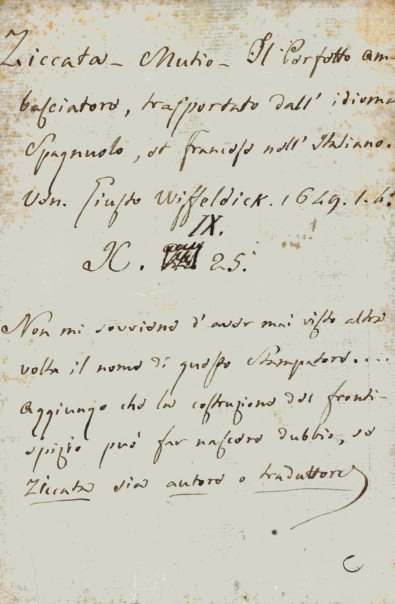 Ziccata - Mutio - Il Perfetto am-
basciatore, trasportato dall' idioma
Spagnuolo, et francese nell' Italiano.
Ven. Giusto Wiffeldick. 1649. 1.4.
IX.
X. 25.
Non mi sovviene d' aver mai visto altra
volta il nome di questo Stampatore....
aggiungo che la costruzione del fronti-
spizio può far nascere dubbio, se
Ziccata sia autore o traduttore